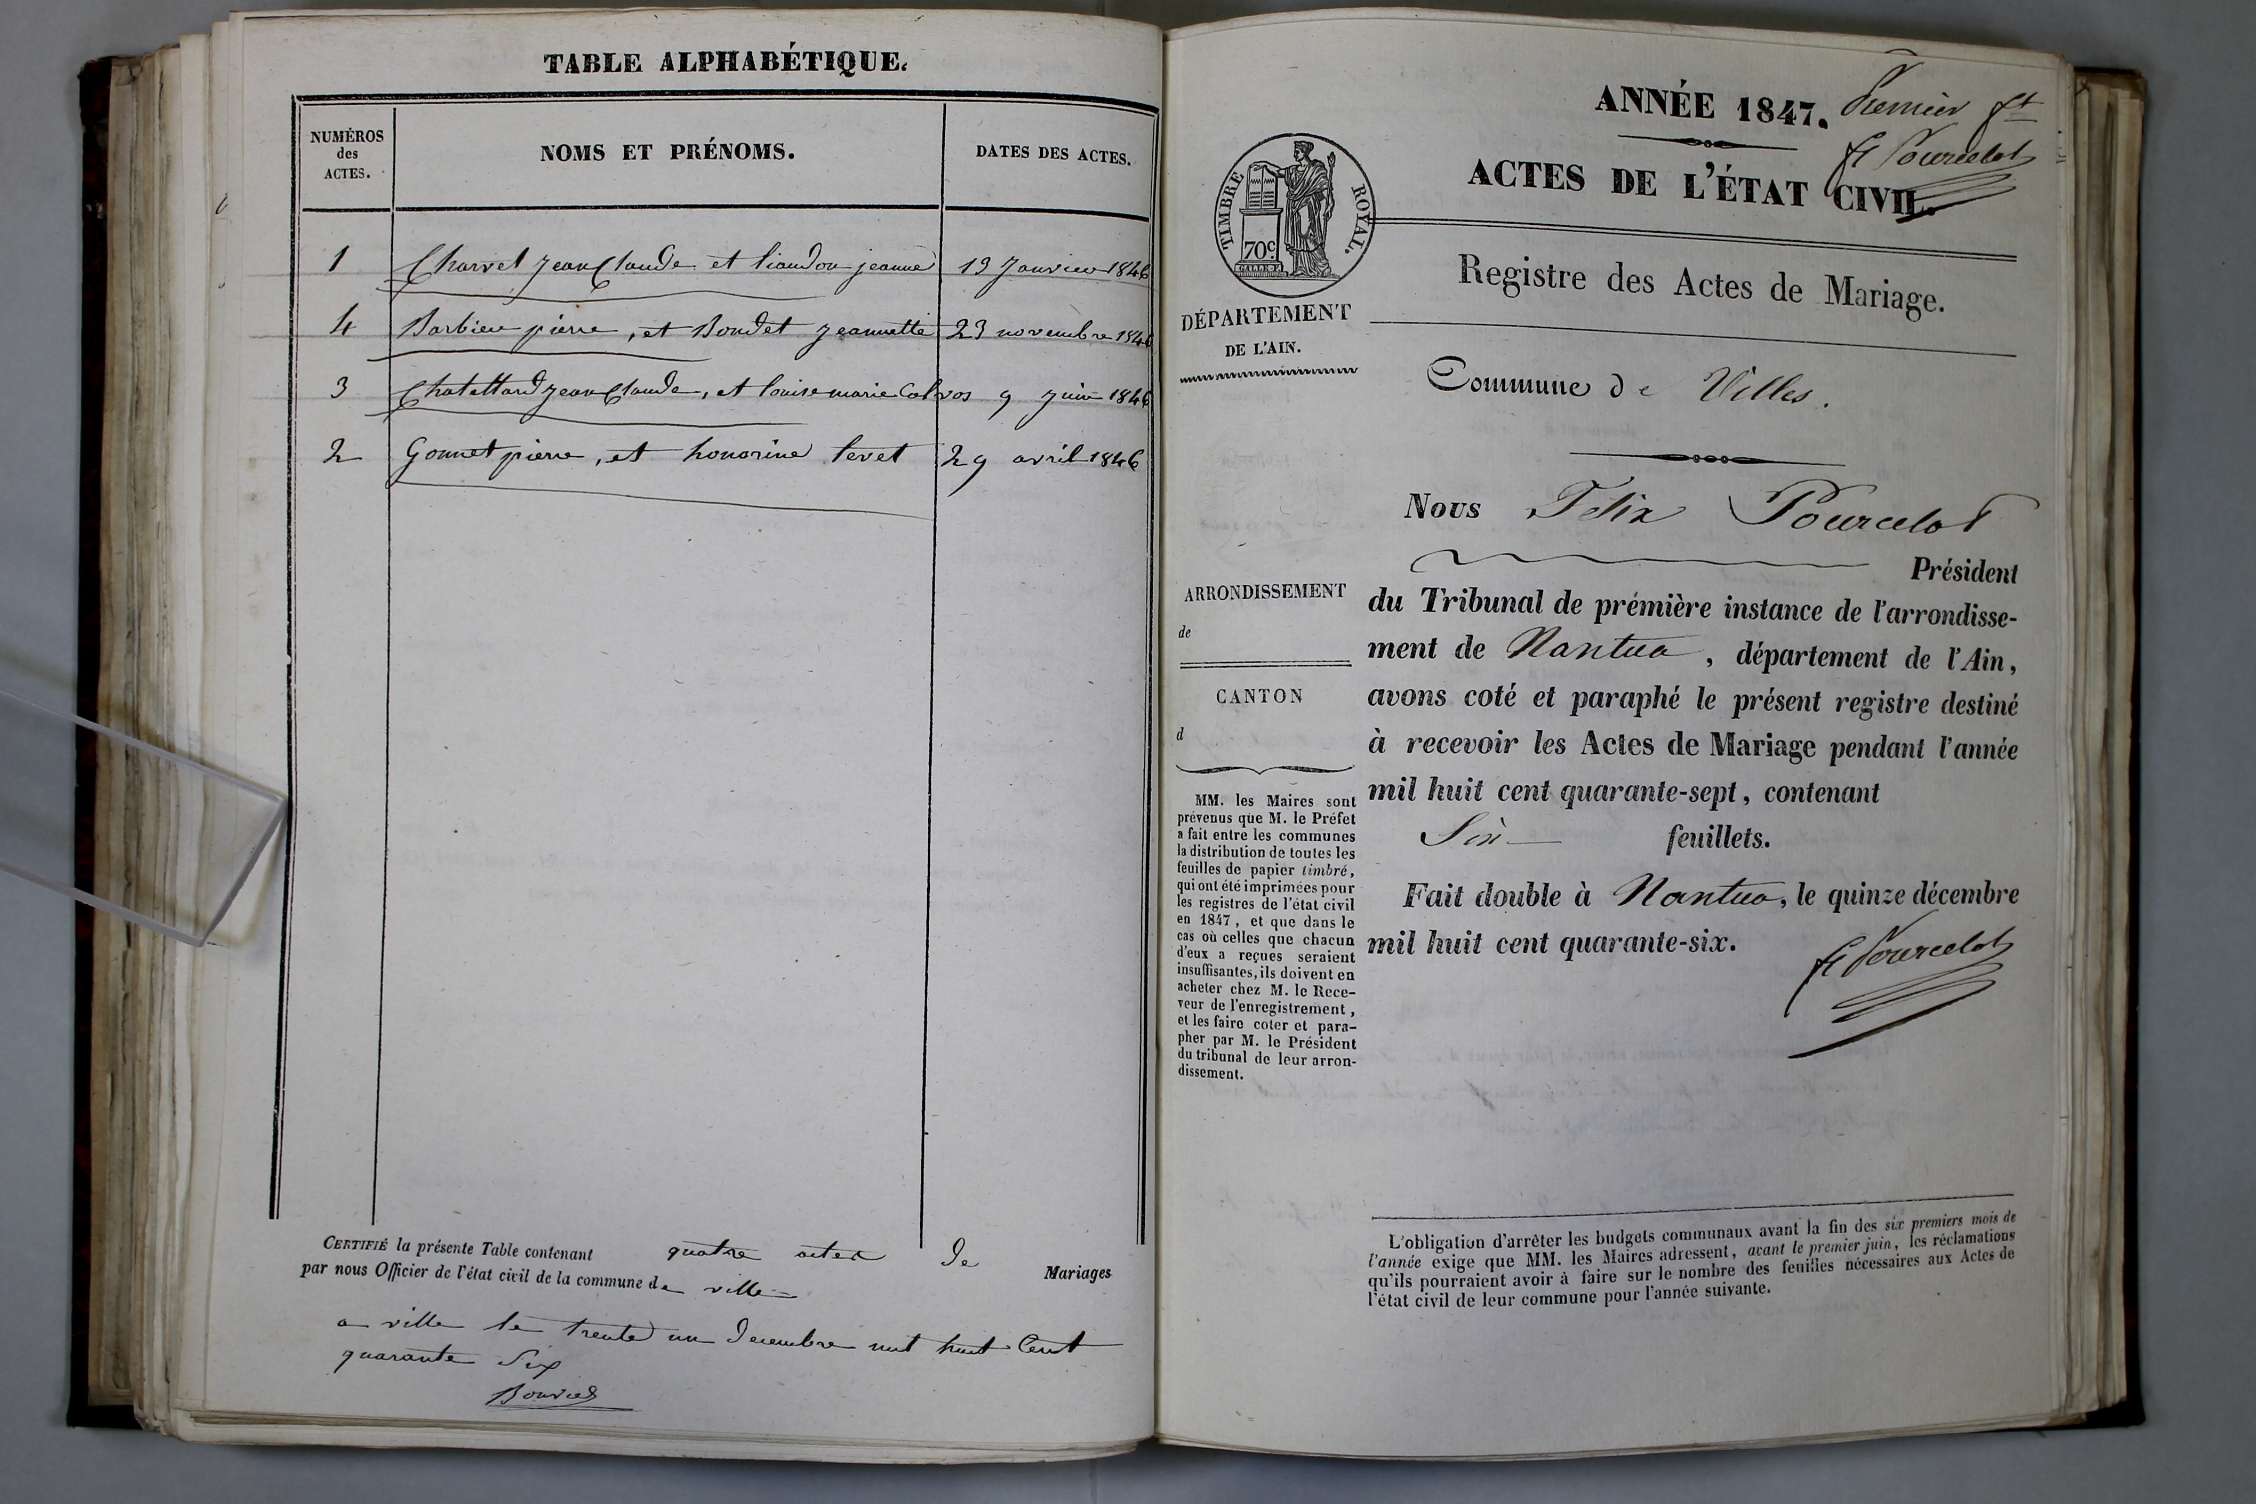 TABLE ALPHABÉTIQUE.
NUMÉROS
des
ACTES.
NOMS ET PRÉNOMS.
DATES DES ACTES.
1 Charvet jean Claude et liaudon jeanne 13 Janvier 1846
4 Barbier pierre, et Boudet jeannette 23 novembre 1846
3 Chatellard jean Claude, et louise marie Calvos 9 juin 1846
2 Gonnet pierre, et honorine levet 29 avril 1846
CERTIFIÉ la présente Table contenant quatre actes de Mariages
par nous Officier de l'état civil de la commune de ville
a ville le trente un decembre mil huit Cent
quarante Six
Bouvier
ANNÉE 1847. Premier ft
F Pourcelot
ACTES DE L'ÉTAT CIVIL.
TIMBRE ROYAL.
70c
Registre des Actes de Mariage.
DÉPARTEMENT
DE L'AIN.
Commune de Villes.
Nous Felix Pourcelot
Président
du Tribunal de prémière instance de l'arrondisse-
ment de Nantua, département de l'Ain,
avons coté et paraphé le présent registre destiné
à recevoir les Actes de Mariage pendant l'année
mil huit cent quarante-sept, contenant
Six feuillets.
Fait double à Nantua, le quinze décembre
mil huit cent quarante-six.
F Pourcelot
ARRONDISSEMENT
de
CANTON
d
MM. les Maires sont
prévenus que M. le Préfet
a fait entre les communes
la distribution de toutes les
feuilles de papier timbré,
qui ont été imprimées pour
les registres de l'état civil
en 1847, et que dans le
cas où celles que chacun
d'eux a reçues seraient
insuffisantes, ils doivent en
acheter chez M. le Rece-
veur de l'enregistrement,
et les faire coter et para-
pher par M. le Président
du tribunal de leur arron-
dissement.
L'obligation d'arrêter les budgets communaux avant la fin des six premiers mois de
l'année exige que MM. les Maires adressent, avant le premier juin, les réclamations
qu'ils pourraient avoir à faire sur le nombre des feuilles nécessaires aux Actes de
l'état civil de leur commune pour l'année suivante.